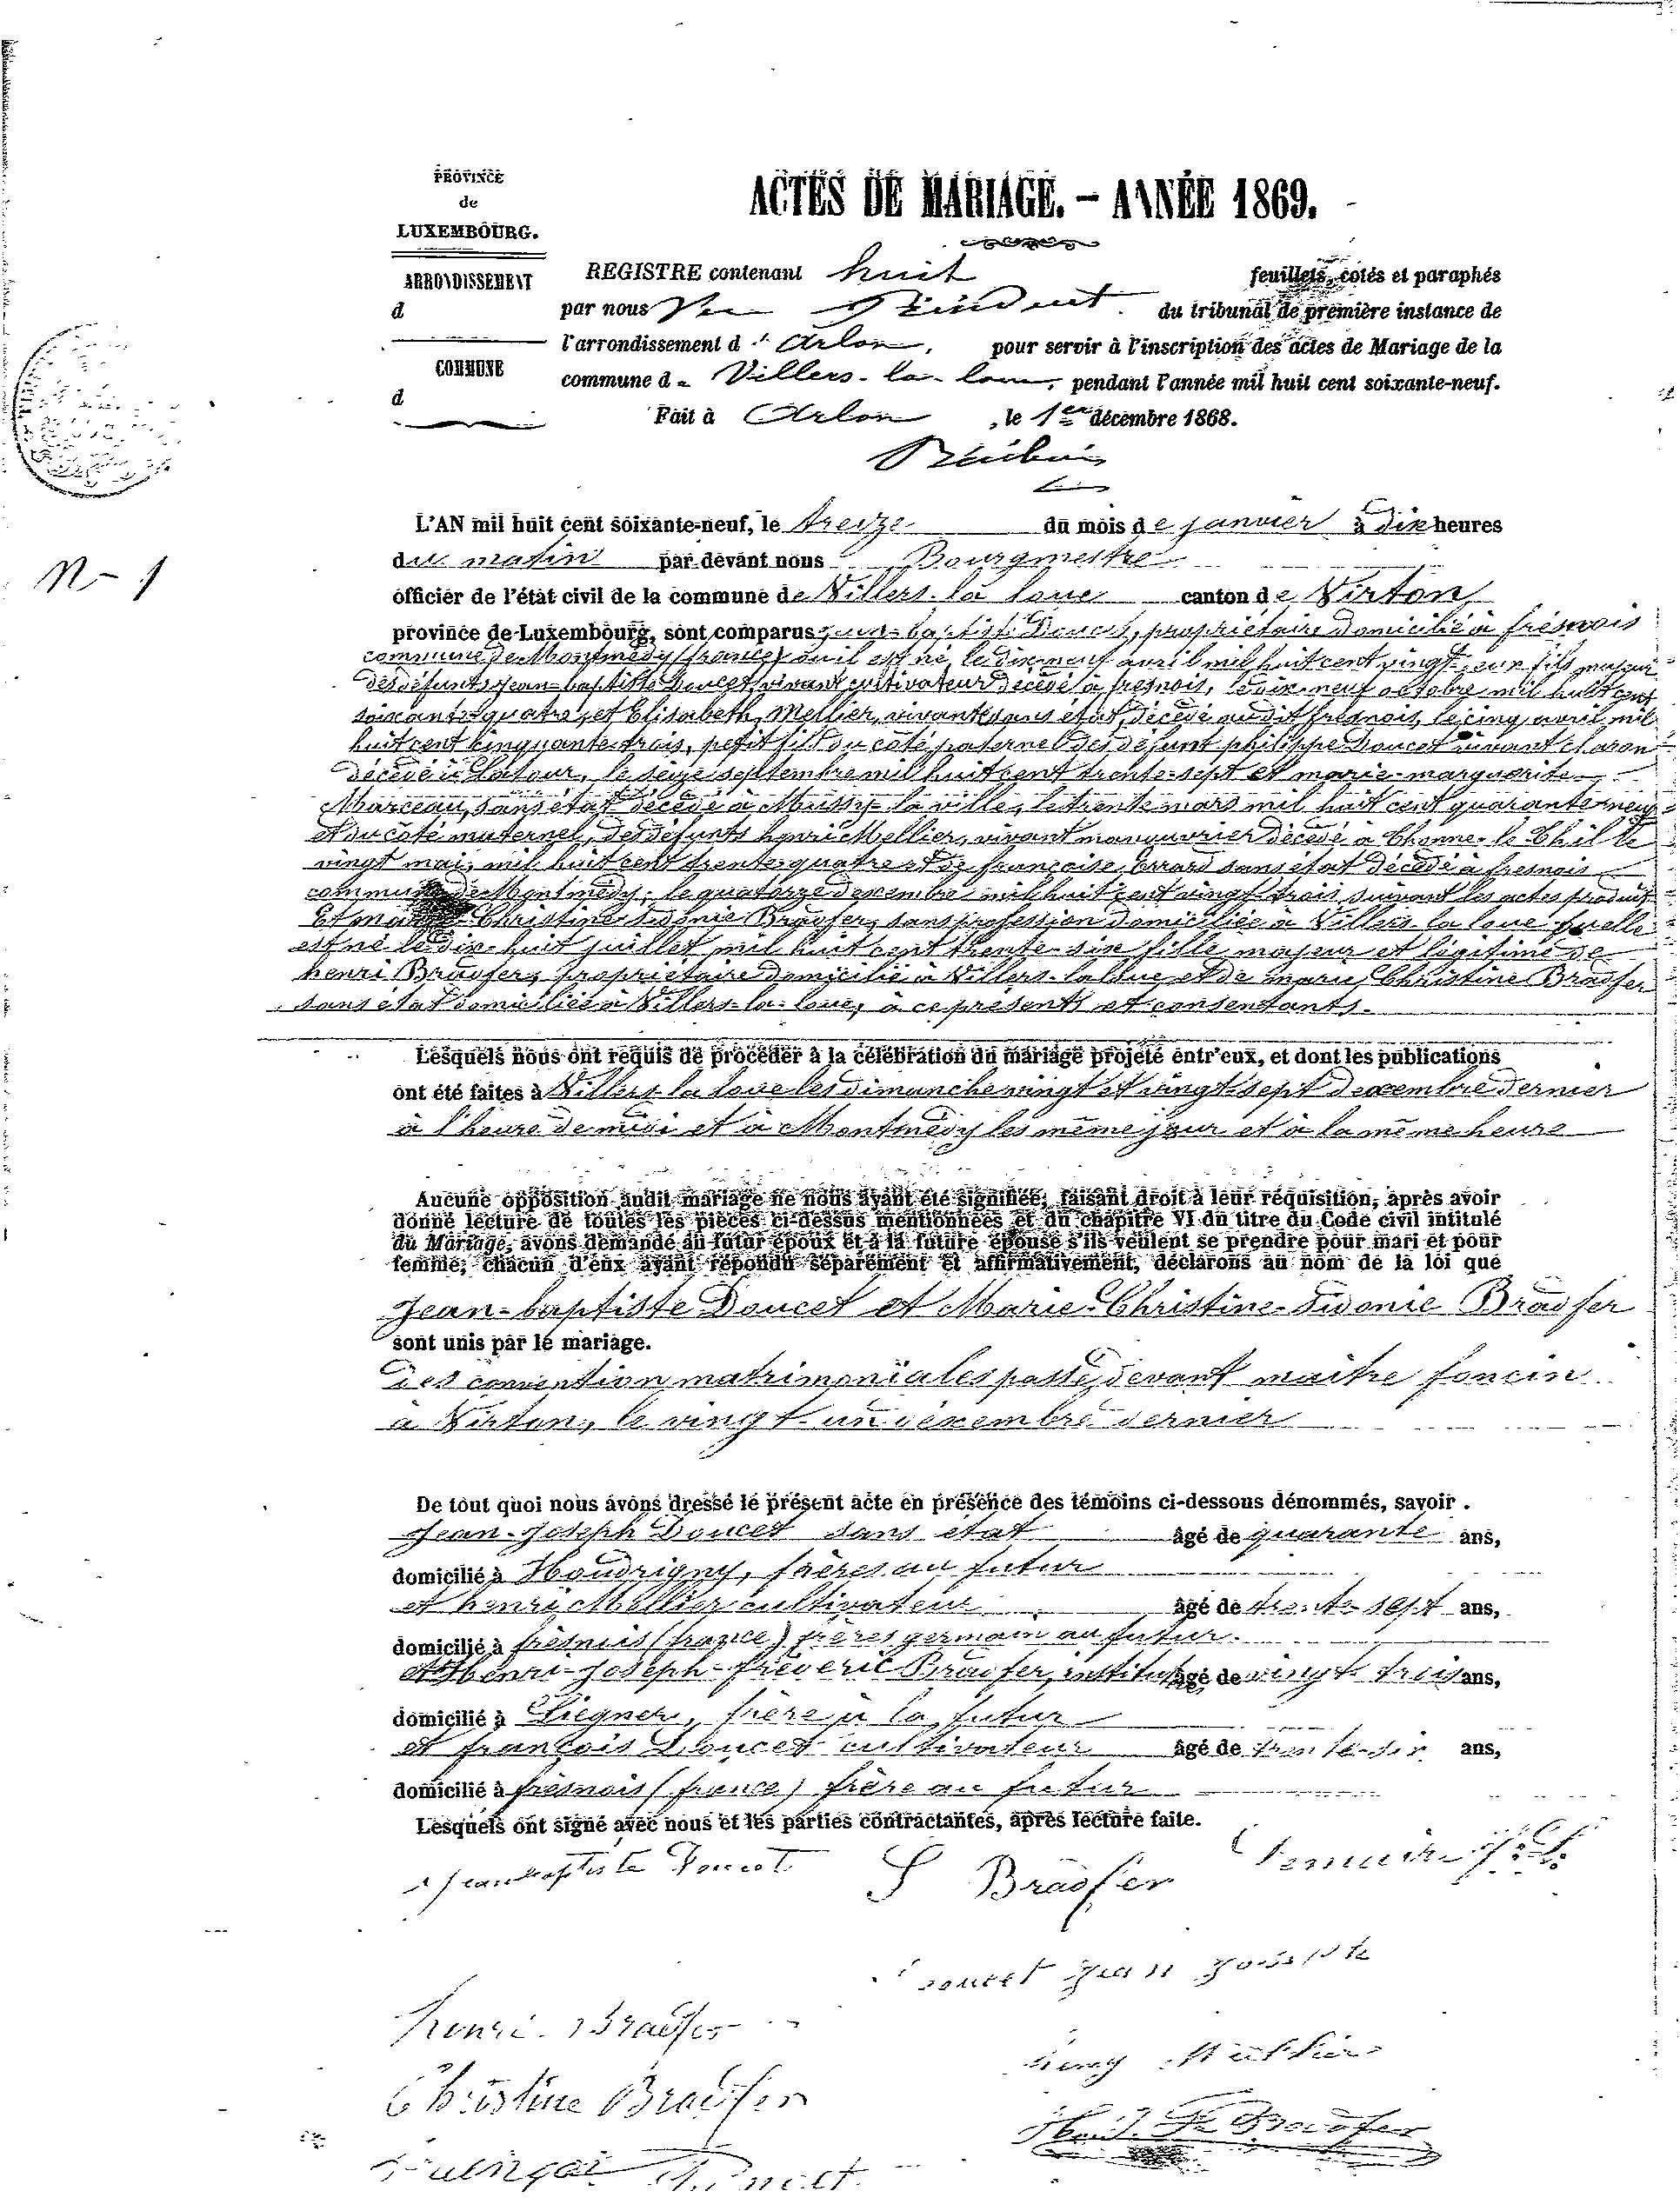 PROVINCE
de
LUXEMBOURG.
ARRONDISSEMENT
d
COMMUNE
d
ACTES DE MARIAGE. - ANNÉE 1869.
REGISTRE contenant huit feuillets, cotés et paraphés
par nous du tribunal de première instance de
l'arrondissement d'Arlon, pour servir à l'inscription des actes de Mariage de la
commune de Villers-la-loue, pendant l'année mil huit cent soixante-neuf.
Fait à Arlon, le 1er décembre 1868.
N-1
L'AN mil huit cent soixante-neuf, le treize du mois de janvier à dix heures
du matin par devant nous Bourgmestre
officier de l'état civil de la commune de Villers-la loue canton de Virton
province de Luxembourg, sont comparus jean-baptiste Doucet, propriétaire domicilié à frésnois
commune de Montmédy (france) où il est né le dix neuf avril mil huit cent vingt, fils majeur
des défunts jean-baptiste Doucet, vivant cultivateur décédé à fresnois, le dix-neuf octobre mil huit cent
soixante-quatre, et Elisabeth Mellier, vivante sans état, décédé audit fresnois, le cinq avril mil
huit cent cinquante-trois, petit fils du côté paternel des défunt philippe Doucet vivant charon
décédé à Latour, le seize septembre mil huit cent trente-sept et marie-marguerite
Marceau, sans état décédé à Mussy-la ville, le trente mars mil huit cent quarante-neuf
et du côté maternel, des défunts henri Mellier, vivant manouvrier décédé à Thonne-le-Thil le
vingt mai mil huit cent trente-quatre et de françoise sans état décédé à fresnois
commune de Montmédy, le quatorze décembre mil huit cent vingt-trois suivant les actes produit
Et marie-Christine-Sidonie Bradfer, sans profession domiciliée à Villers la loue quelle
est né le dix-huit juillet mil huit cent trente-six fille majeur et légitime de
henri Bradfer, propriétaire domicilié à Villers-la loue, et de marie Christine Bradfer
sans état domiciliée à Villers-la-loue, à ce présents et consentants.
Lesquels nous ont requis de procéder à la célébration du mariage projeté entr'eux, et dont les publications
ont été faites à Villers la loue les dimanche vingt et vingt-sept décembre dernier
à l'heure de midi et à Montmédy les même jour et à la même heure
Aucune opposition audit mariage ne nous ayant été signifiée, faisant droit à leur réquisition, après avoir
donné lecture de toutes les pièces ci-dessus mentionnées et du chapitre VI du titre du Code civil intitulé
du Mariage, avons demandé au futur époux et à la future épouse s'ils veulent se prendre pour mari et pour
femme; chacun d'eux ayant répondu séparément et affirmativement, déclarons au nom de la loi que
Jean-baptiste Doucet et Marie-Christine-Sidonie Bradfer
sont unis par le mariage.
Des convention matrimoniales passé devant maître foncin
à Virton, le vingt-un décembre dernier
De tout quoi nous avons dressé le présent acte en présence des témoins ci-dessous dénommés, savoir.
Jean-Joseph Doucet sans état âgé de quarante ans,
domicilié à Houdrigny, frères au futur
et henri Mellier cultivateur âgé de trente sept ans,
domicilié à fresnois (france) frères germain au futur.
et Henri-Joseph-fréderic Bradfer, instituteur âgé de vingt-trois ans,
domicilié à frère à la futur
et françois Doucet cultivateur âgé de trente-six ans,
domicilié à fresnois (france) frère au futur
Lesquels ont signé avec nous et les parties contractantes, après lecture faite.
Jean baptiste Doucet S Bradfer
Doucet Jean Joseph
Henri Bradfer
Henry Mellier
Christine Bradfer
Henri J. F. Bradfer
Doucet